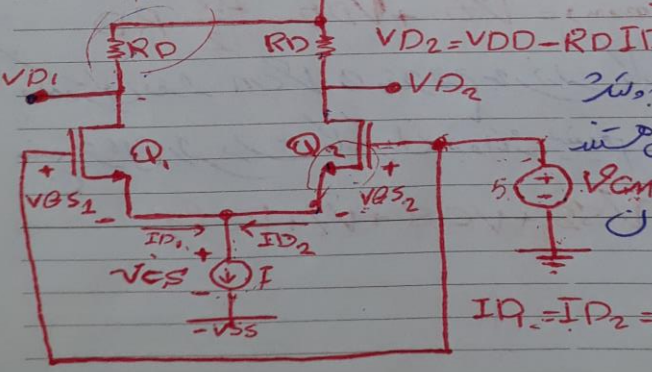 RD
RD
VD2=VDD-RDID
VD1
VD2
Q1
Q2
VGS1
+
-
VGS2
+
-
5
+
-
VCM
ID1
ID2
+
VCS
-
I
-VSS
ID1=ID2=